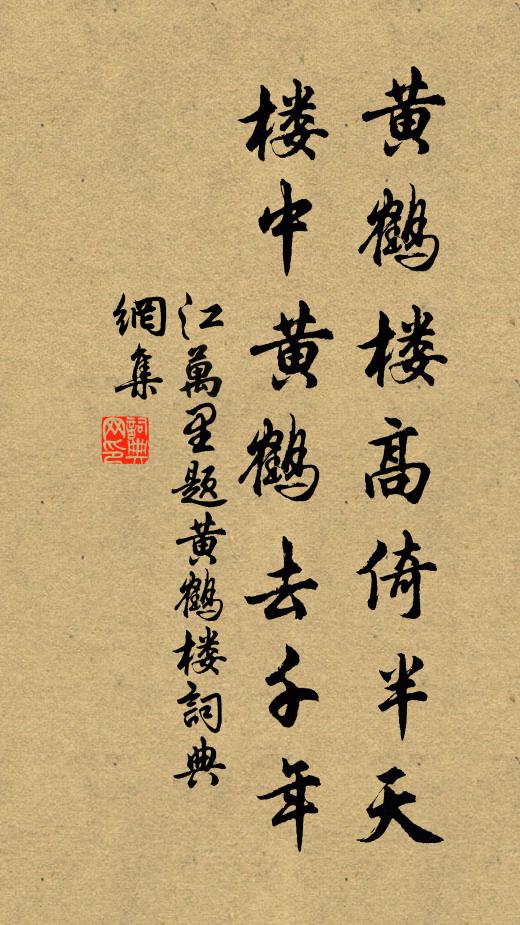 黄鹤楼高倚半天
楼中黄鹤去千年
江萬里题黄鹤楼詞典
網集
詞典
网印